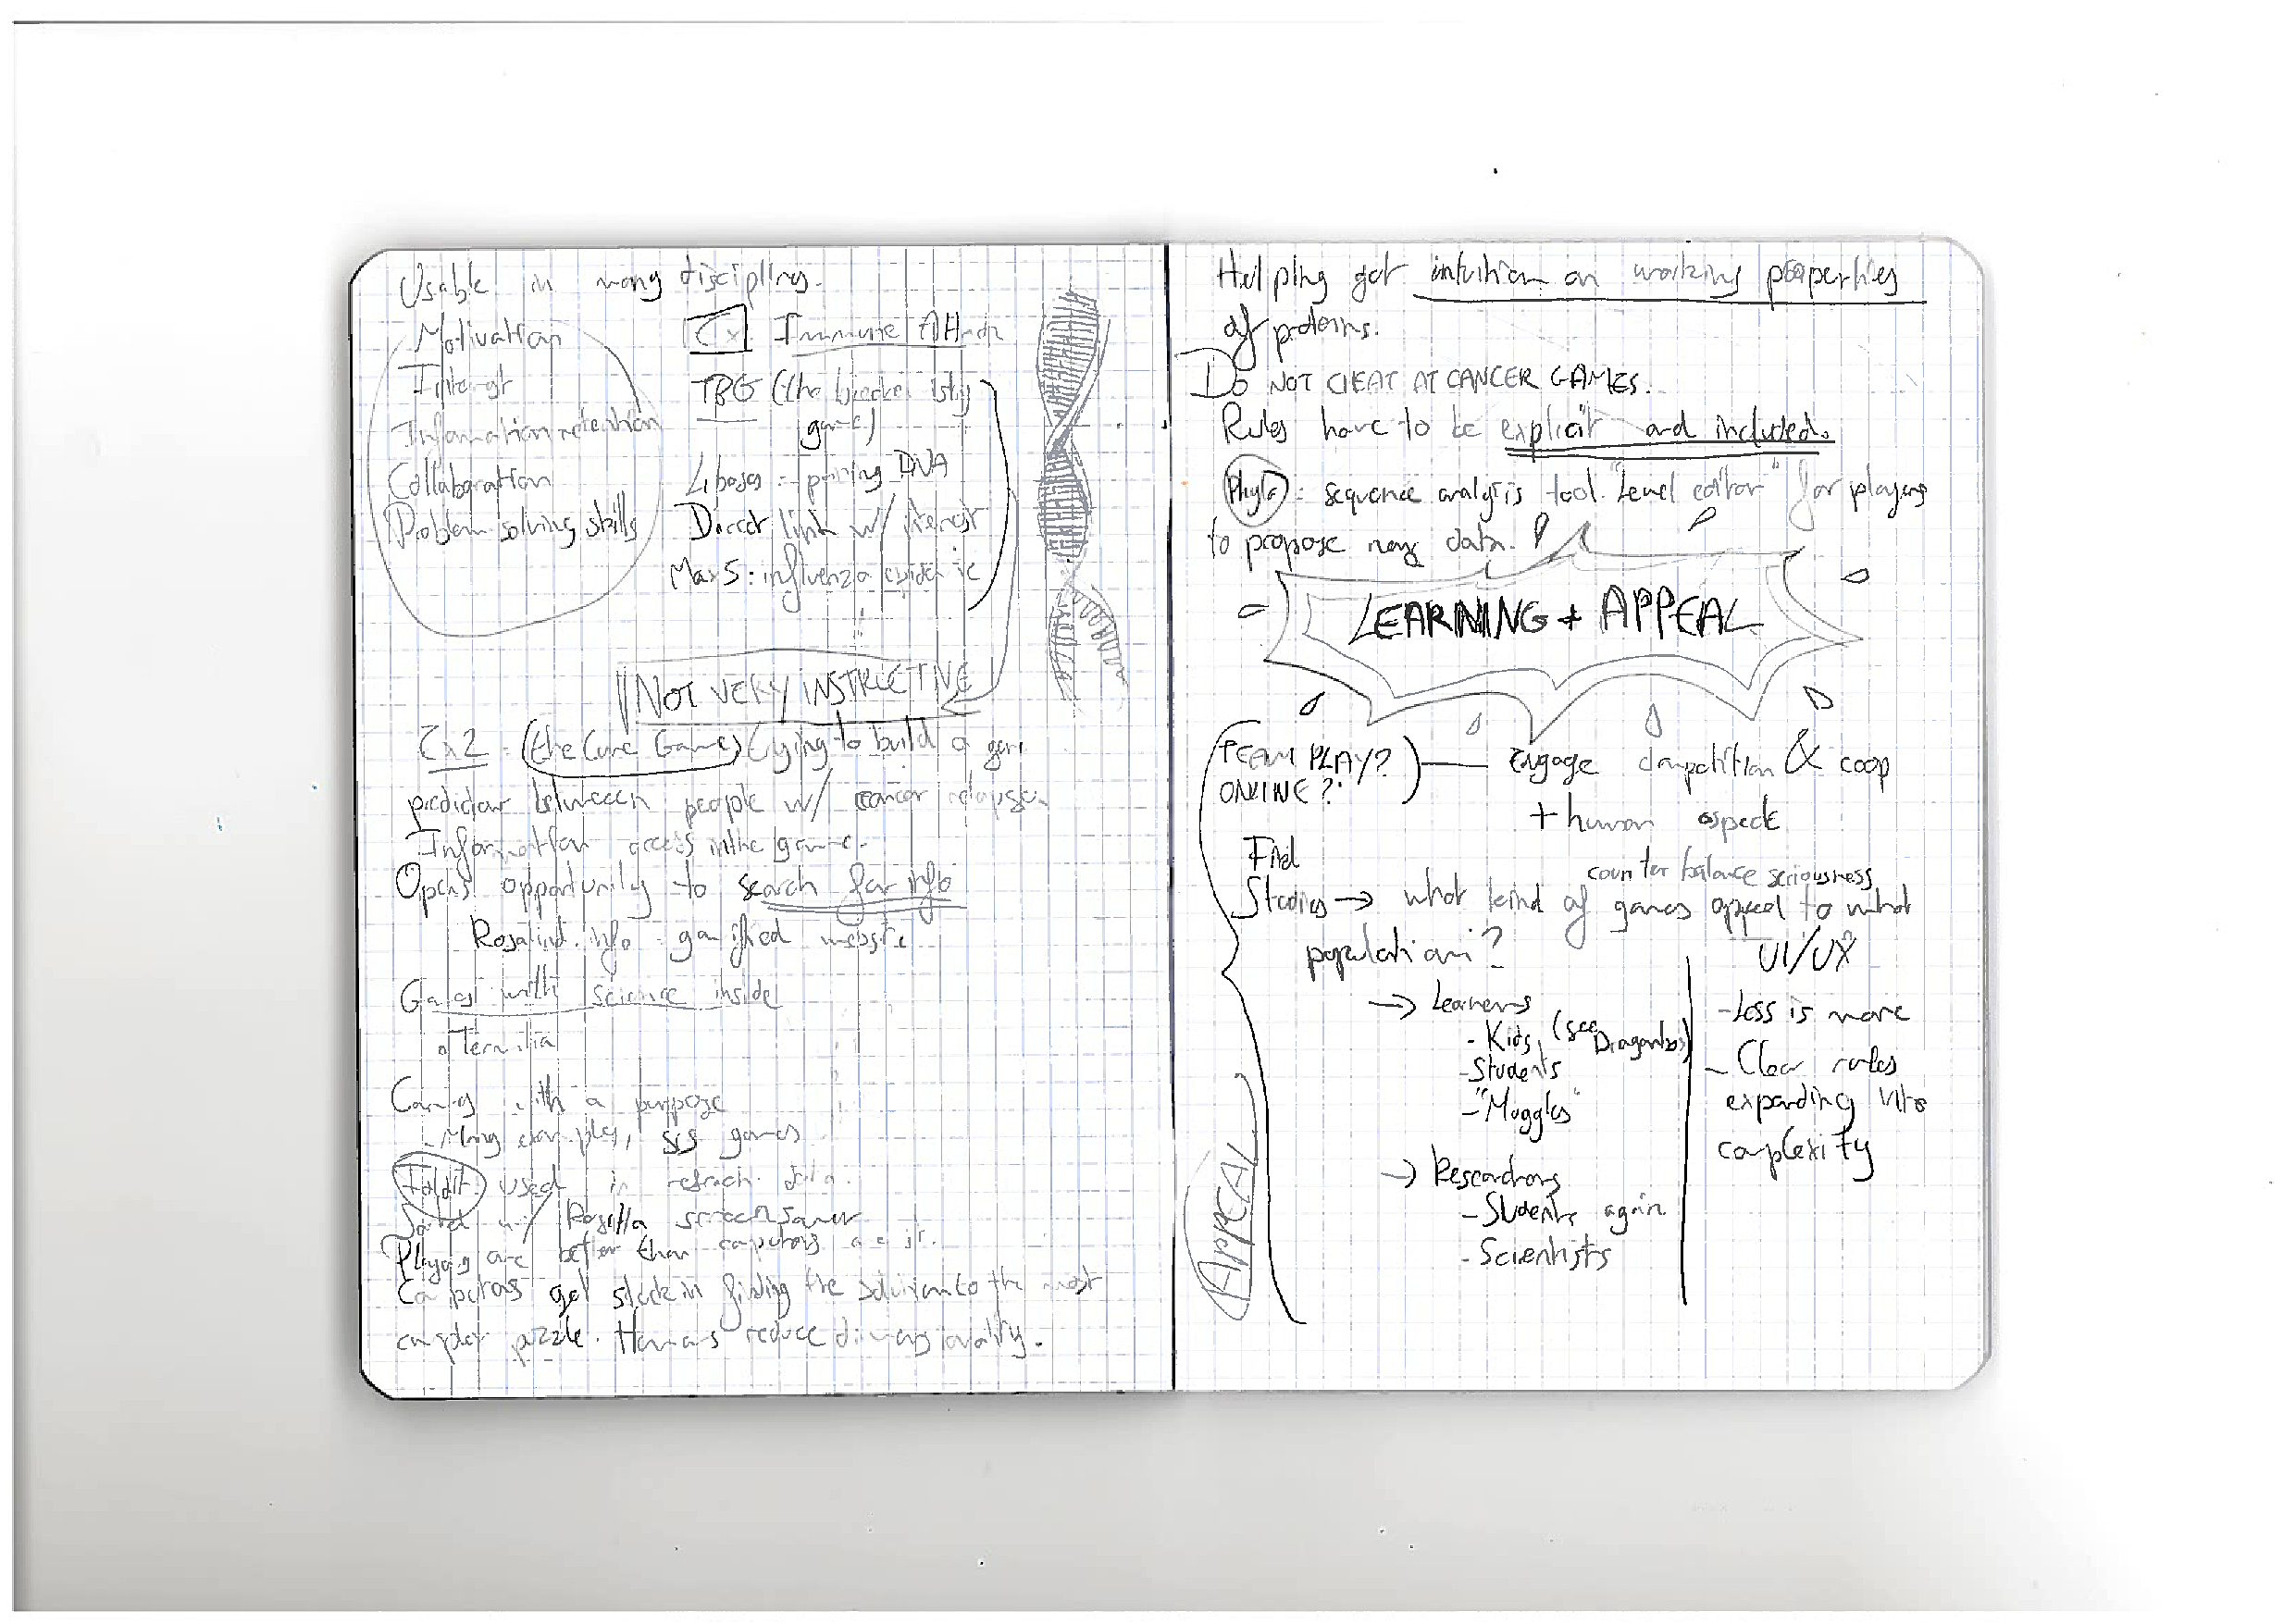 Usable in many disciplines.
Motivation
Interest
Information retention
Collaboration
Problem solving skills
Ex Immune Attack
TBG (the
game)
4 bases = pairing DNA
Direct link w/ interest
Max 5: influenza
NOT VERY INSTRUCTIVE
Ex2 = (the Cure Game) trying to build a gene
predictor between people w/ cancer relapse.
Information access in the game.
Opens opportunity to search for info
Rosalind.info = gamified website
Games with science inside
Games with a purpose
- Many examples, games
Foldit used in
w/ Rosetta screensaver
Players are better than computers
Computers get stuck in finding the solution to the most
complex puzzle. Humans reduce dimensionality.
Helping get intuition on working properties
of proteins.
DO NOT CHEAT AT CANCER GAMES.
Rules have to be explicit and included.
Phylo: sequence analysis tool. "Level editor" for players
to propose new data.
LEARNING + APPEAL
TEAM PLAY?
ONLINE?
Engage competition & coop
+ human aspect
counter balance seriousness
Find
Studies → what kind of games appeal to what
population?
→ Learners
- Kids (see Dragonbox)
- Students
- "Muggles"
→ Researchers
- Students again
- Scientists
UI/UX
- Less is more
- Clear rules
expanding into
complexity
APPEAL